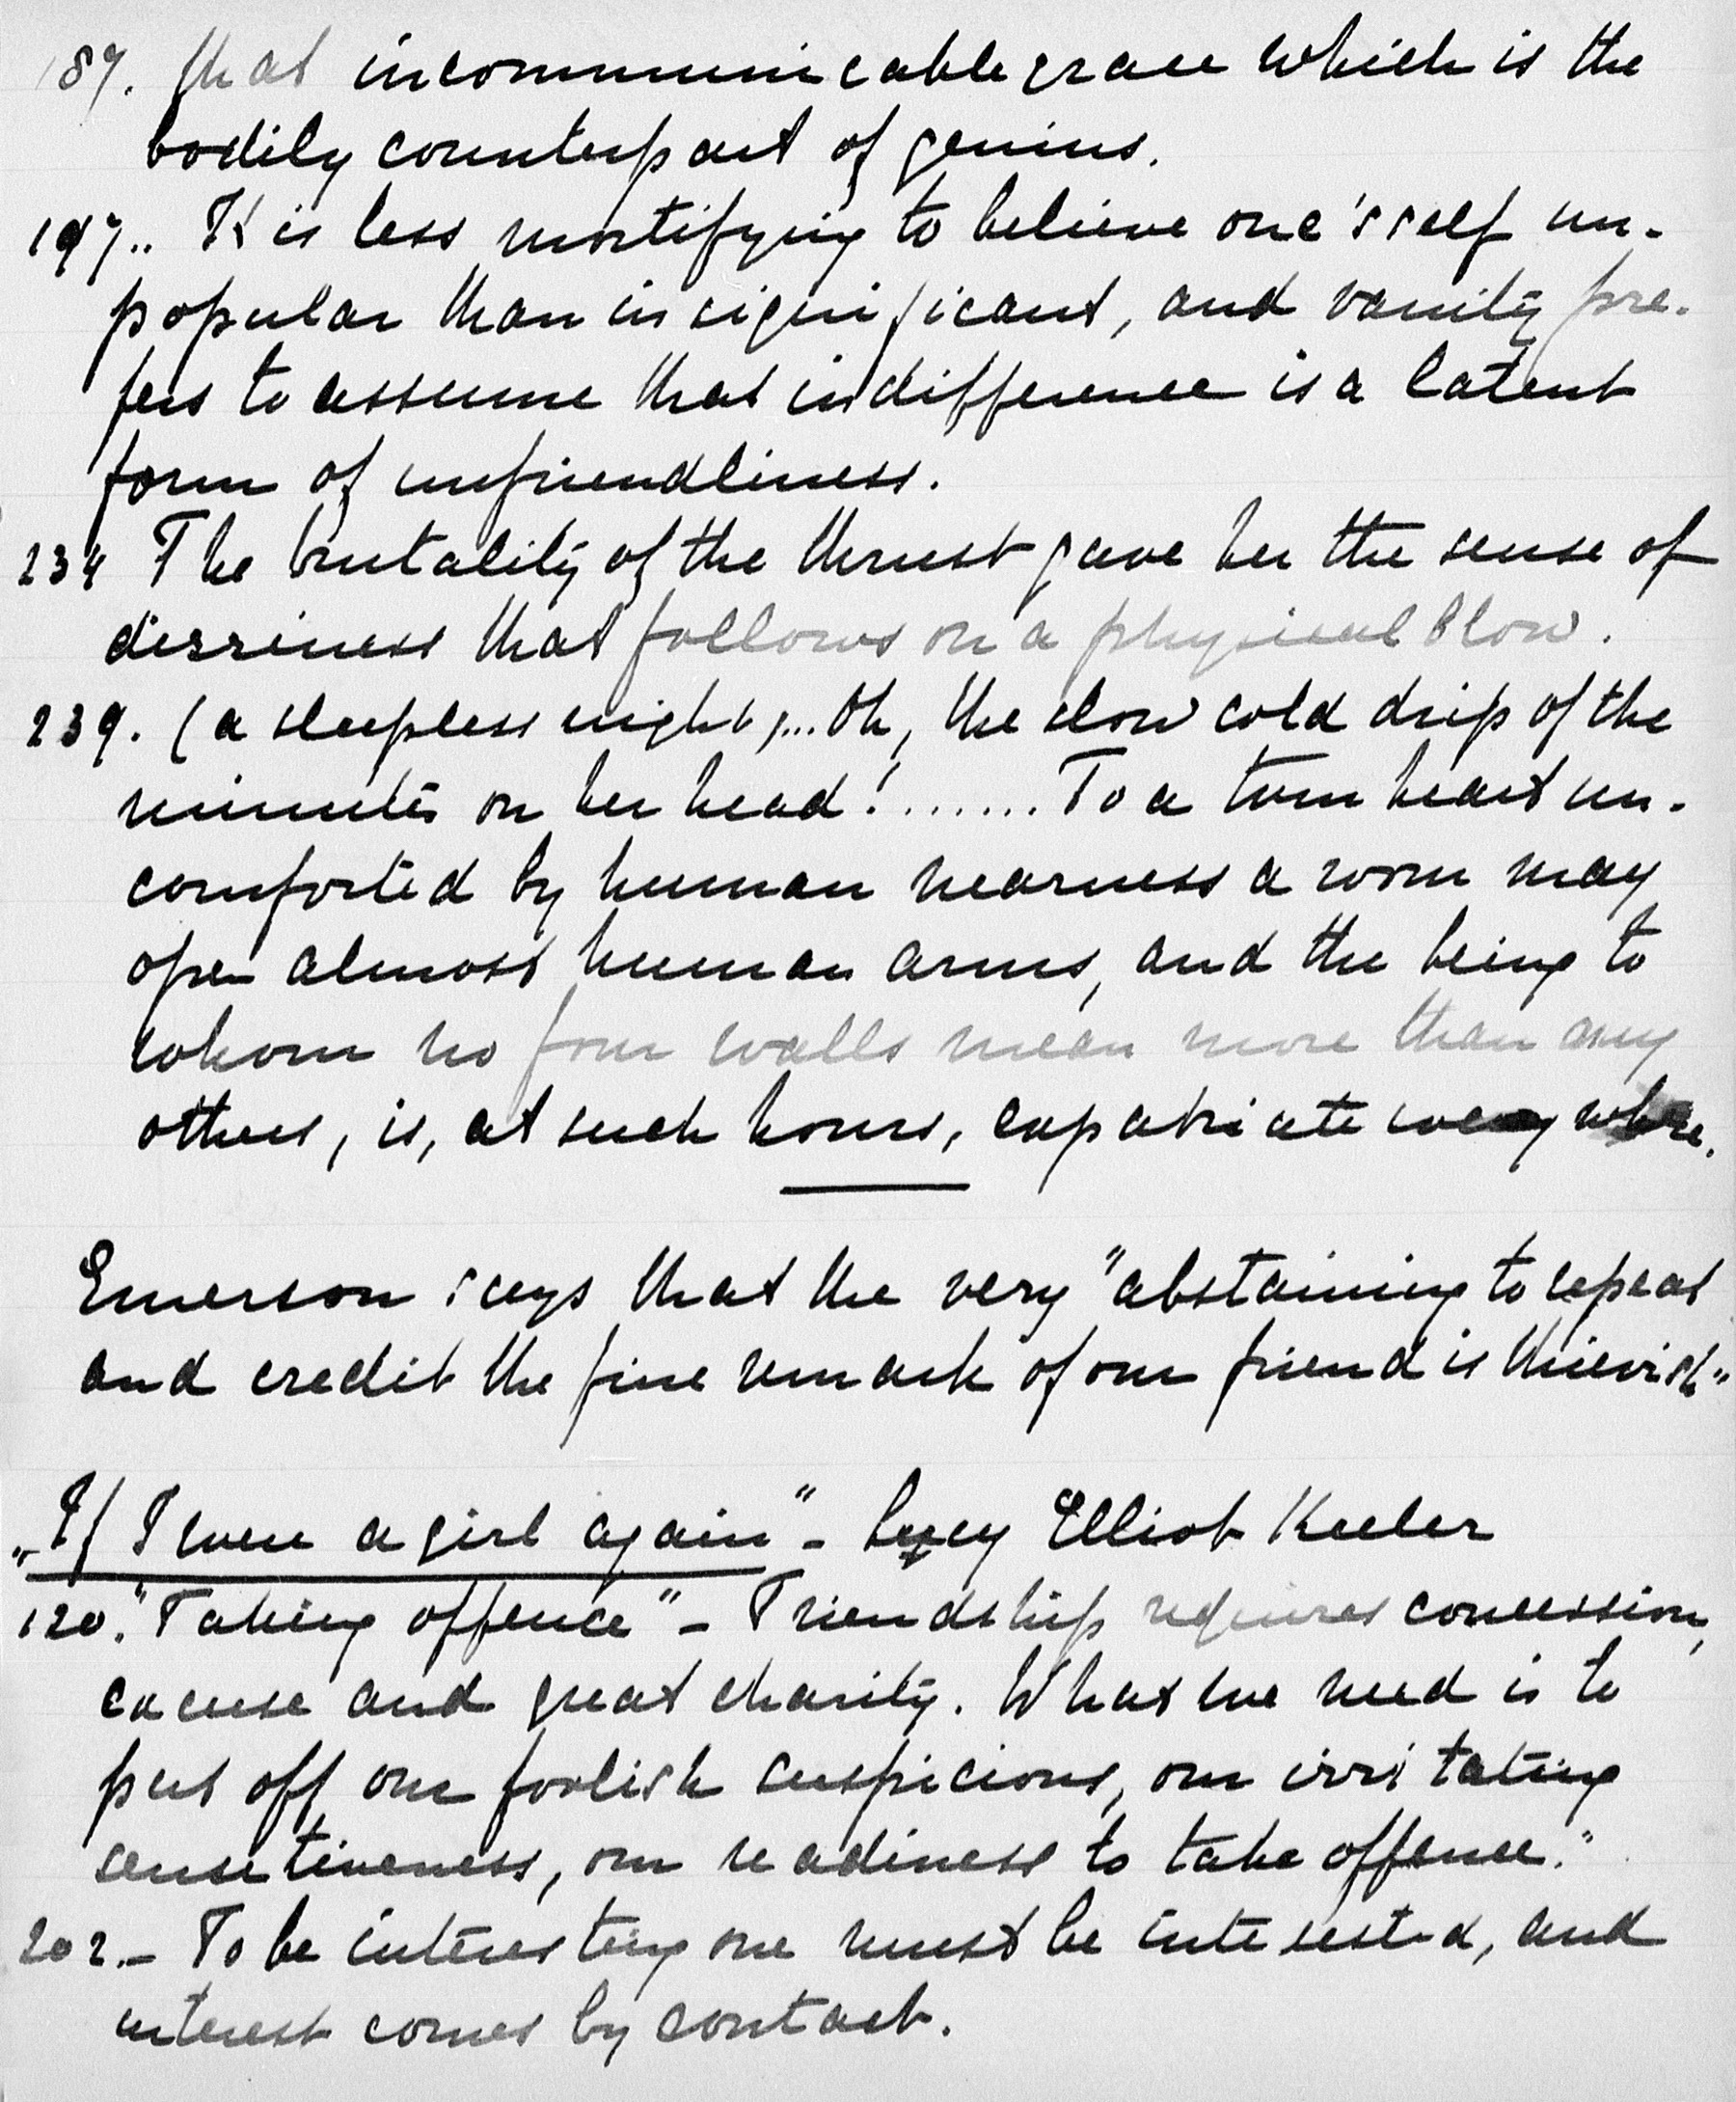 187. that incommunicable grace which is the
bodily counterpart of genius.
197.. It is less mortifying to believe one's self un-
popular than insignificant, and vanity pre-
fers to assume that indifference is a latent
form of unfriendliness.
234 The brutality of the thrust gave her the sense of
dizziness that follows on a physical blow.
239. (a sleepless night)... Oh, the slow cold drip of the
minutes on her head! ....... To a torn heart un-
comforted by human nearness a room may
open almost human arms, and the being to
whom no four walls mean more than any
others, is, at such hours, expatriate everywhere.
Emerson says that the very "abstaining to repeat
and credit the fine remark of our friend is thievish"
"If I were a girl again" - Lucy Elliot Keeler
120. "Taking offence" - Friendship requires concession,
excuse and great charity. What we need is to
put off our foolish suspicions, our irritating
sensitiveness, our readiness to take offence."
202.- To be interesting one must be interested, and
interest comes by contact.